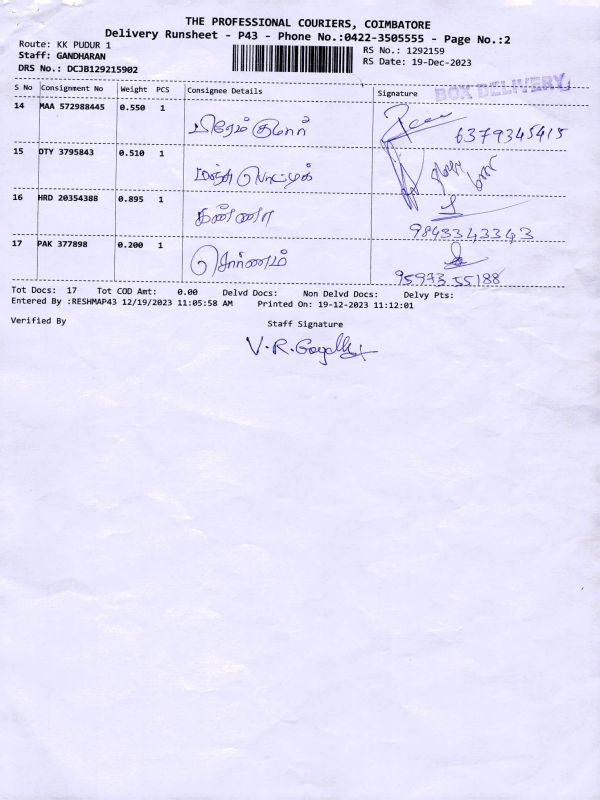 THE PROFESSIONAL COURIERS, COIMBATORE
Delivery Runsheet - P43 - Phone No.:0422-3505555 - Page No.:2
Route: KK PUDUR 1
RS No.: 1292159
Staff: GANDHARAN
RS Date: 19-Dec-2023
DRS No.: DCJB129215902
BOX DELIVERY
S No Consignment No Weight PCS Consignee Details Signature
14 MAA 572988445 0.550 1 பிரேம் குமார்
6379345415
15 DTY 3795843 0.510 1
16 HRD 20354388 0.895 1 கண்ணா
9843343343
17 PAK 377898 0.200 1 சொர்ணம்
95973 55188
Tot Docs: 17 Tot COD Amt: 0.00 Delvd Docs: Non Delvd Docs: Delvy Pts:
Entered By :RESHMAP43 12/19/2023 11:05:58 AM Printed On: 19-12-2023 11:12:01
Verified By Staff Signature
V.R.